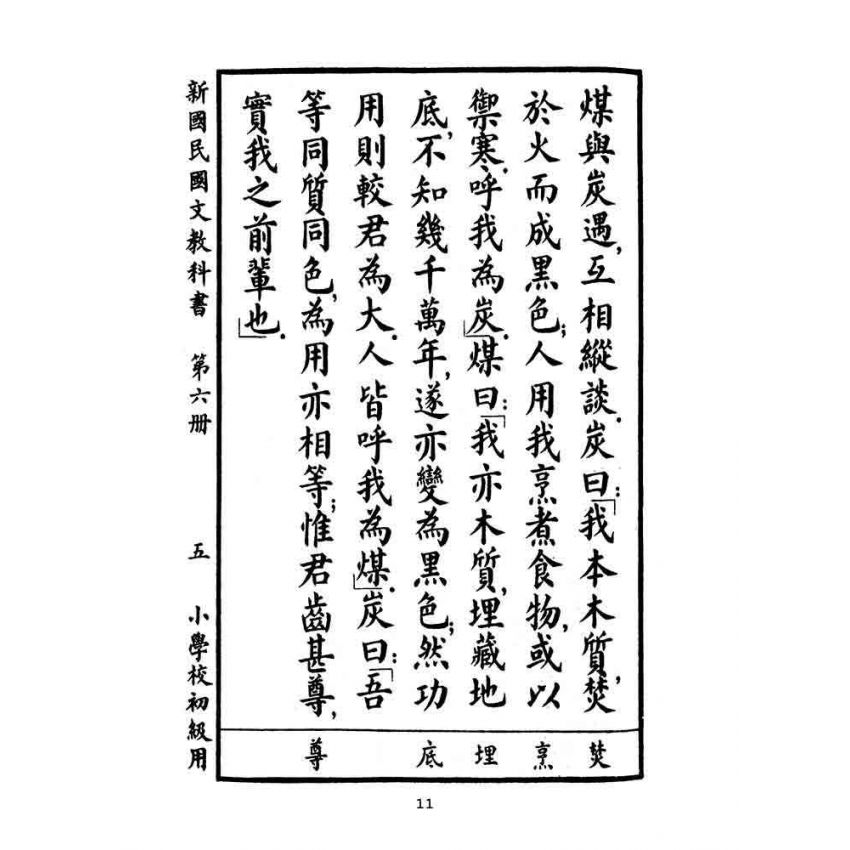 煤與炭遇,互相縱談.炭曰:「我本木質,焚
於火而成黑色;人用我烹煮食物,或以
禦寒.呼我為炭.」煤曰:「我亦木質,埋藏地
底,不知幾千萬年,遂亦變為黑色;然功
用則較君為大.人皆呼我為煤.」炭曰:「吾
等同質同色,為用亦相等;惟君齒甚尊,
實我之前輩也.」
焚
烹
埋
底
尊
新國民國文教科書 第六册 五 小學校初級用
11